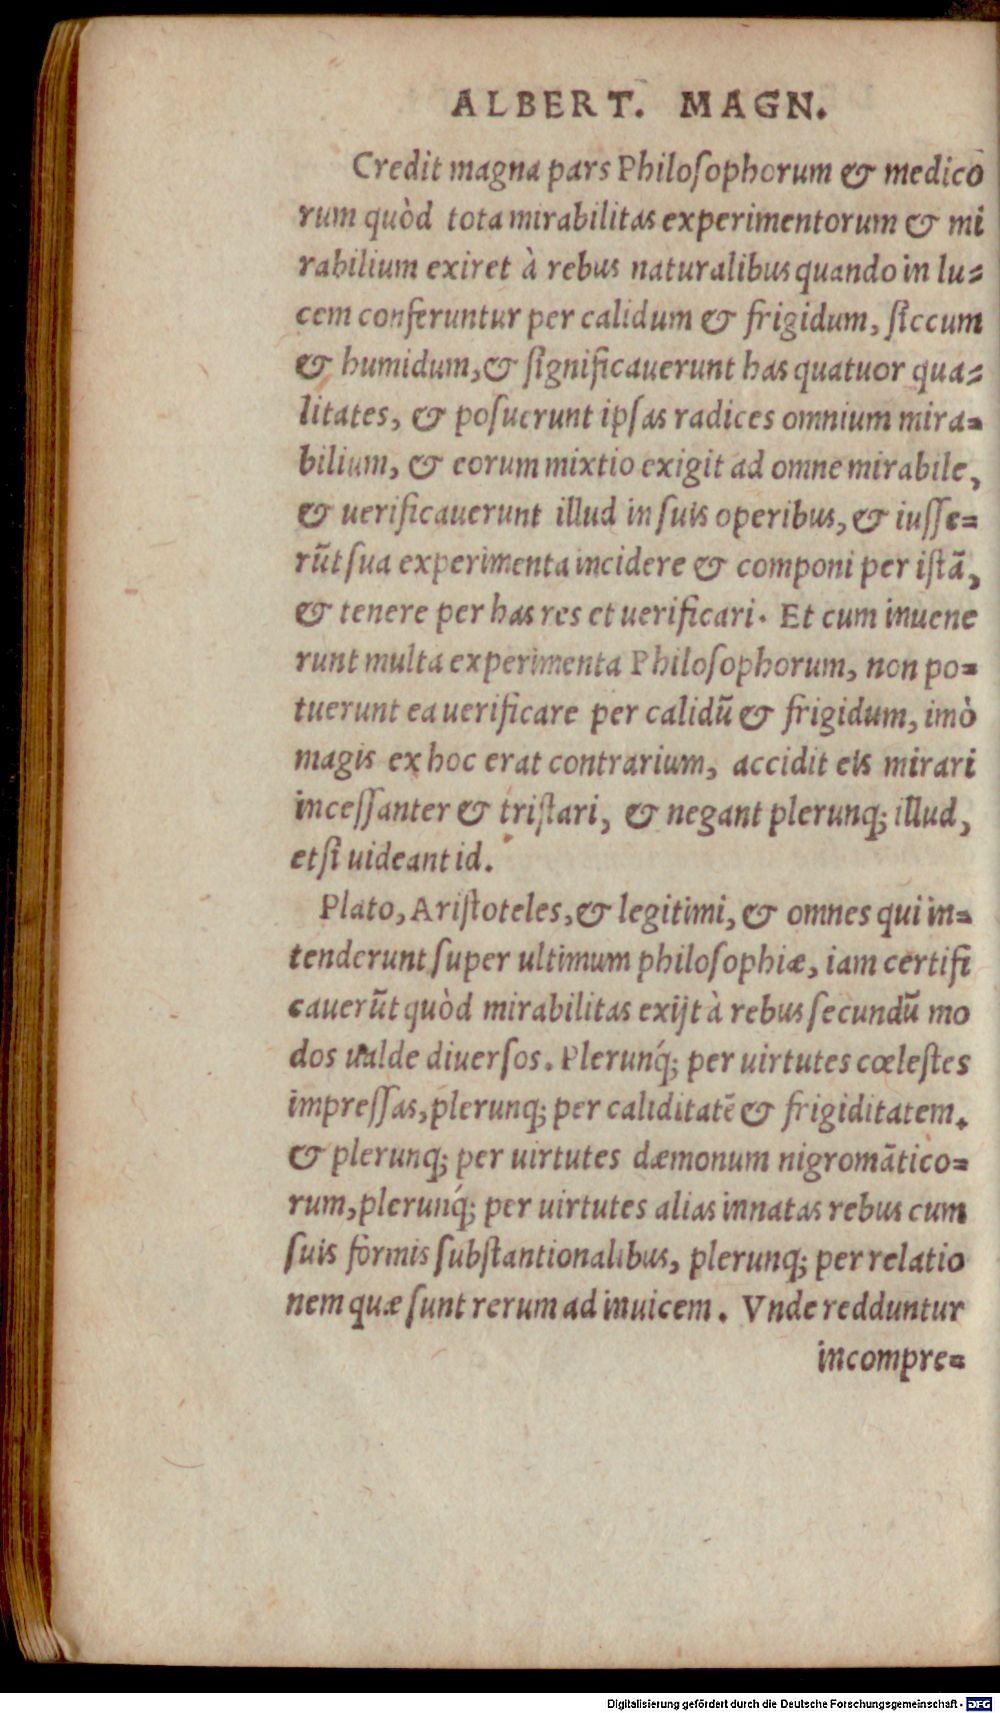 ALBERT. MAGN.
Credit magna pars Philosophorum & medicō
rum quòd tota mirabilitas experimentorum & mi
rabilium exiret à rebus naturalibus quando in lu=
cem conferuntur per calidum & frigidum, siccum
& humidum, & significauerunt has quatuor qua=
litates, & posuerunt ipsas radices omnium mira=
bilium, & eorum mixtio exigit ad omne mirabile,
& uerificauerunt illud in suis operibus, & iusse=
rūt sua experimenta incidere & componi per istā,
& tenere per has res et uerificari. Et cum inuene
runt multa experimenta Philosophorum, non po=
tuerunt ea uerificare per calidū & frigidum, imò
magis ex hoc erat contrarium, accidit eis mirari
incessanter & tristari, & negant plerunq; illud,
etsi uideant id.
Plato, Aristoteles, & legitimi, & omnes qui in=
tenderunt super ultimum philosophiæ, iam certifi
cauerūt quòd mirabilitas exijt à rebus secundū mo
dos ualde diuersos. Plerunq́; per uirtutes cœlestes
impressas, plerunq; per caliditatē & frigiditatem.
& plerunq; per uirtutes dæmonum nigromātico=
rum, plerunq́; per uirtutes alias innatas rebus cum
suis formis substantionalibus, plerunq; per relatio
nem quæ sunt rerum ad inuicem. Vnde redduntur
incompre=
Digitalisierung gefördert durch die Deutsche Forschungsgemeinschaft - DFG